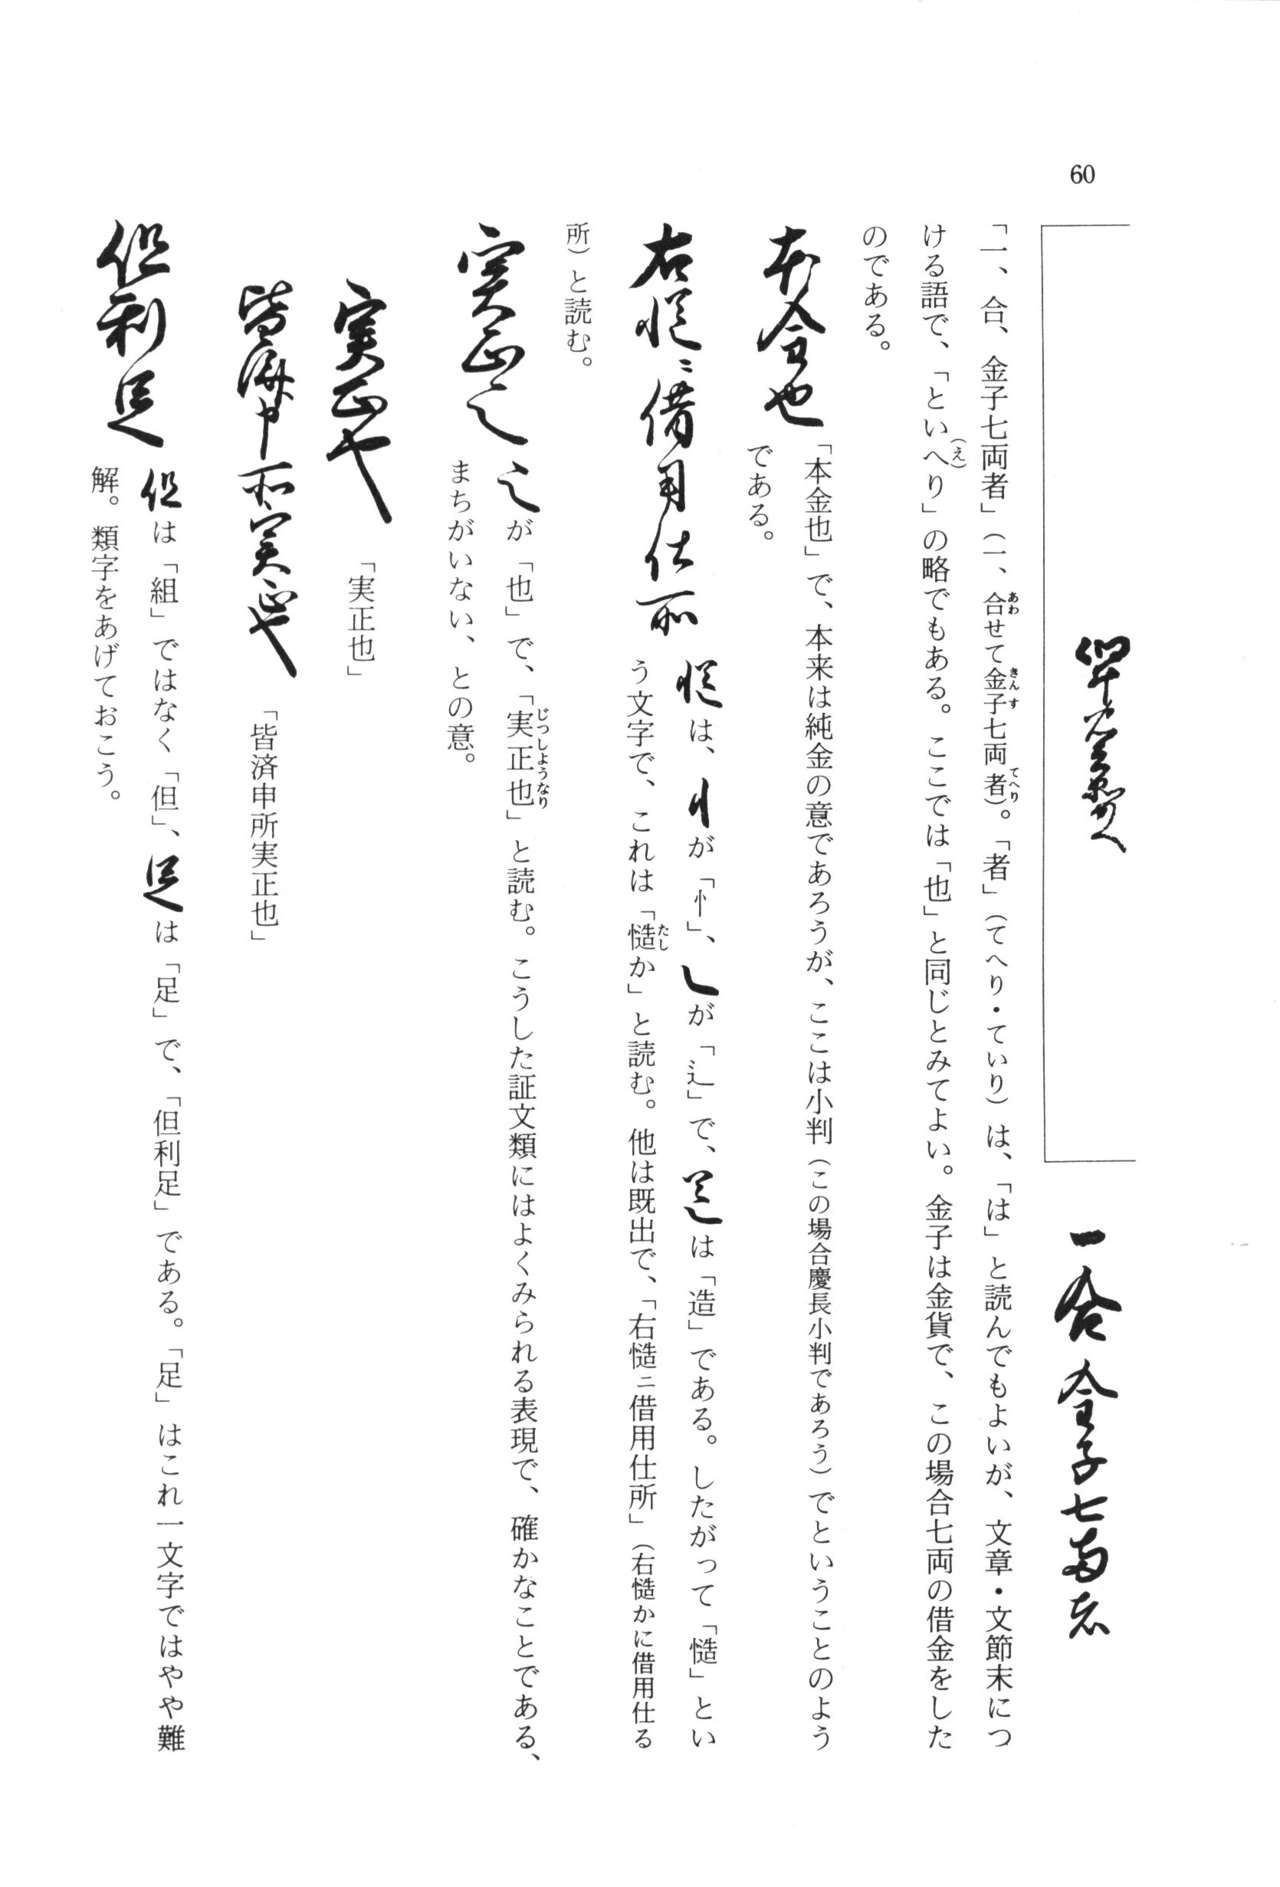 60
一合金子七両者
「一、合、金子七両者」(一、合せて金子七両者)。「者」(てへり・ていり)は、「は」と読んでもよいが、文章・文節末につ
ける語で、「といへり」の略でもある。ここでは「也」と同じとみてよい。金子は金貨で、この場合七両の借金をした
のである。
本金也
「本金也」で、本来は純金の意であろうが、ここは小判(この場合慶長小判であろう)でということのよう
である。
右慥ニ借用仕所
慥は、忄が「忄」、辶が「辶」で、造は「造」である。したがって「慥」とい
う文字で、これは「慥か」と読む。他は既出で、「右慥ニ借用仕所」(右慥かに借用仕る
所)と読む。
実正也
也が「也」で、「実正也」と読む。こうした証文類にはよくみられる表現で、確かなことである、
まちがいない、との意。
実正也
「実正也」
皆済申所実正也
「皆済申所実正也」
但利足
但は「組」ではなく「但」、足は「足」で、「但利足」である。「足」はこれ一文字ではやや難
解。類字をあげておこう。